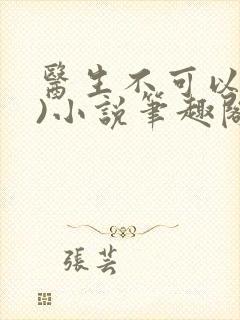 醫生不可以
)小說筆趣閣
張芸